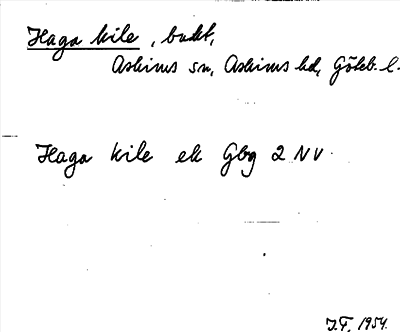 Haga kile, bukt,
Askims sn, Askims hd, Göteb. l.
Haga kile ek Gbg 2 NV.
J.F, 1954.